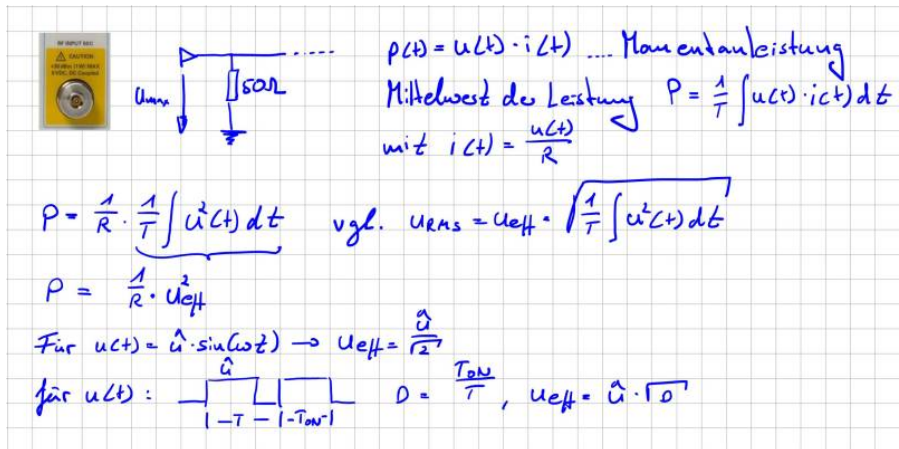 RF INPUT 50Ω
CAUTION
+30dBm (1W) MAX
DC Coupled
Umax
50Ω
p(t) = u(t) · i(t) .... Momentanleistung
Mittelwert der Leistung P = 1/T ∫ u(t) · i(t) dt
mit i(t) = u(t)/R
P = 1/R · 1/T ∫ u²(t) dt vgl. URMS = Ueff = √(1/T ∫ u²(t) dt)
P = 1/R · U²eff
Für u(t) = û · sin(ωt) → Ueff = û/√2
für u(t) : û D = TON/T , Ueff = û · √D
|-T-|-TON-|